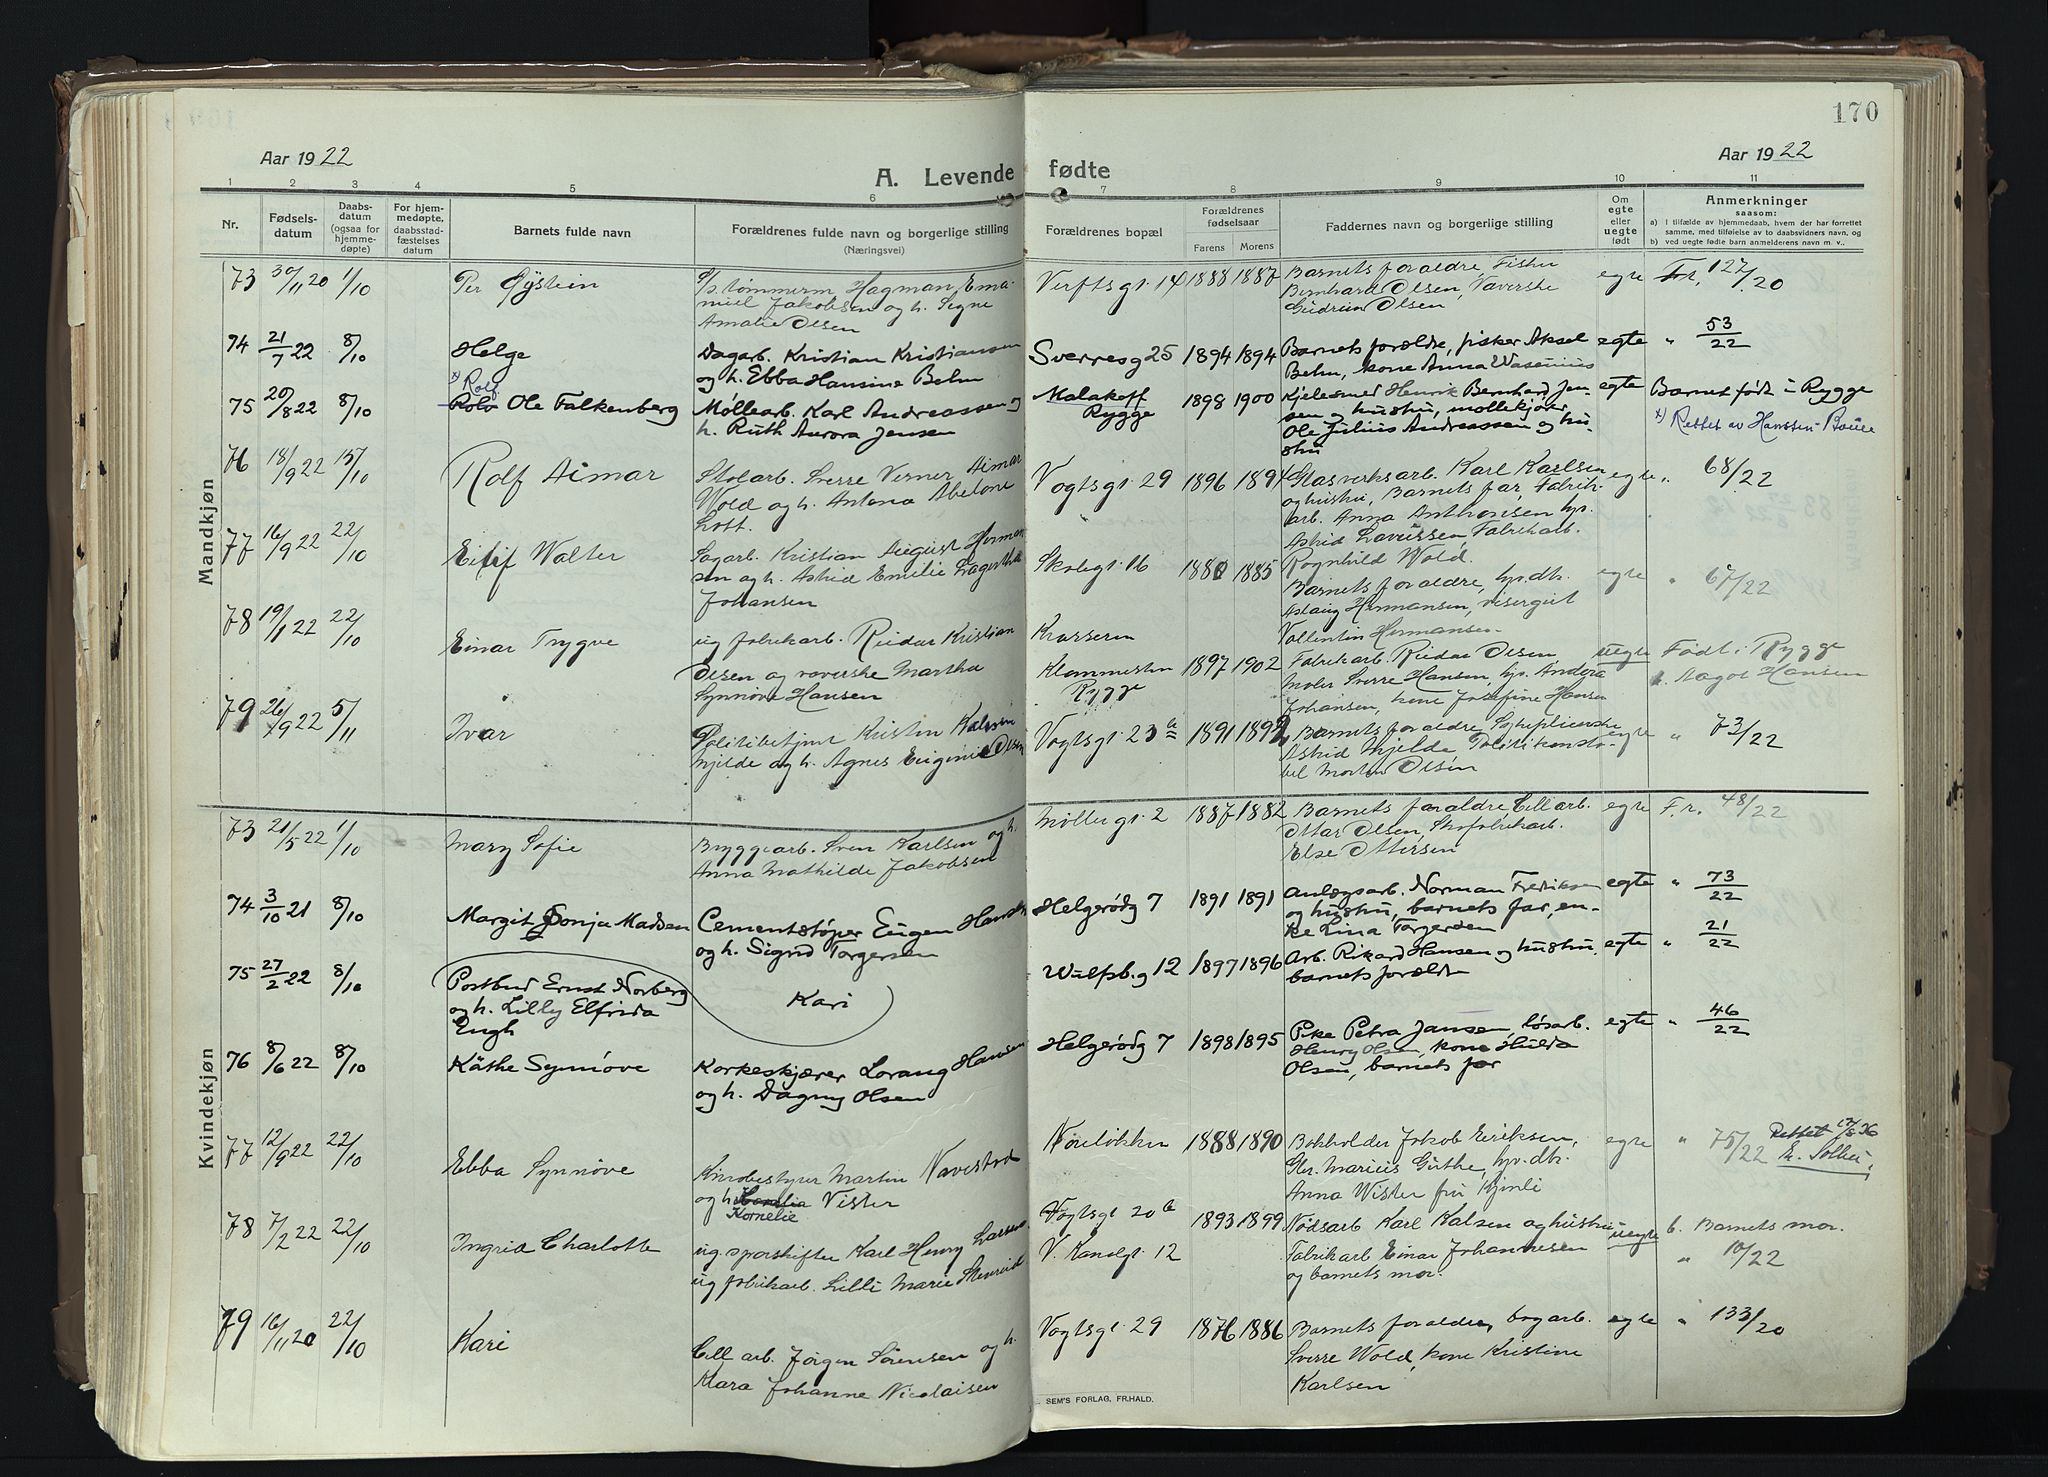 170
Aar 1922
A. Levende fødte
Aar 1922
1 2 3 4 5 6 7 8 9 10 11
Nr.
Fødsels-
datum
Daabs-
datum
(ogsaa for
hjemme-
døpte)
For hjem-
medøpte,
daabsstad-
fæstelses
datum
Barnets fulde navn
Forældrenes fulde navn og borgerlige stilling
(Næringsvei)
Forældrenes bopæl
Forældrenes
fødselsaar
Farens Morens
Faddernes navn og borgerlige stilling
Om
egte
eller
uegte
født
Anmerkninger
saasom:
a) I tilfælde av hjemmedaab, hvem der har forrettet
samme, med tilføielse av to daabsvidners navn, og
b) ved uegte fødte barn anmelderens navn m. v.,
Mandkjøn
73 30/11 20 1/10 Per Øystein
tømmerm Hagman Ema-
nuel Jakobsen og h. Signe
Amalie Olsen
Verftsgt. 14 1888 1887
Barnets foraldre, Fisker
Bernhard Olsen, Væverske
Gudrun Olsen
egte Fr. 127/20
74 21/7 22 8/10 Helge
Dagarb. Kristian Kristiansen
og h. Ebba Hansine Behn
Sverresg 25 1894 1894
Barnets forælde, fisker Aksel
Behn, kone Anna Wasenius
egte " 53/22
75 20/8 22 8/10 x) Rolf
Rolv Ole Falkenberg
Møllearb. Karl Andreassen og
h. Ruth Aurora Jensen
Malakoff
Rygge
1898 1900
Kjelesmed Henrik Bernhard Jen-
sen og hustru, møllekjører
Ole Julius Andreassen og hu-
stru
egte Barnet født i Rygge
x) Rettet av Hanssen-Bauer
76 18/9 22 15/10 Rolf Aimar
Stolarb. Sverre Verner Aimar
Wold og h. Antona Abelone
Lott.
Vogtsgt. 29 1896 1894
Glasverksarb. Karl Karlsen
og hustru, Barnets far, Fabrik-
arb. Anna Anthonisen, hp.
Astrid Lauritsen, Fabrikarb.
Ragnhild Wold.
egte " 68/22
77 16/9 22 22/10 Eilif Walter
Sagarb. Kristian August Herman-
sen og h. Astrid Emilie
Johansen
Skolegt. 16 1880 1885
Barnets foraldre, hp. dh.
Aslaug Hermansen, visergut
Vallentin Hermansen
egte " 67/22
78 19/1 22 22/10 Einar Trygve
ug fabrikarb. Reidar Kristian
Olsen og væverske Martha
Synnøve Hansen
Krosseren
Klommesten
Rygge
1897 1902
Fabrikarb. Reidar Olsen
Maler Sverre Hansen, hp. Andrea
Johansen, kone Josefine Hansen
uegte Født i Rygge
b. Aagot Hansen
79 26/9 22 5/11 Ivar
Politibetjent Kristin
Hjelde og h. Agnes Eugenie Olsen
Vogtsgt. 23 b 1891 1892
Barnets foraldre, Sykepleierske
Astrid Hjelde Politikonsta-
bel Morten Olsen
egte " 73/22
Kvindekjøn
73 21/5 22 1/10 Mary Sofie
Bryggearb. Sven Karlsen og h.
Anna Mathilde Jakobsen
Møllergt. 2 1887 1882
Barnets foraldre, Cell arb.
Ottar Olsen, Skofabrikarb.
Else Ottersen
egte F.r. 48/22
74 3/10 21 8/10 Margit Sonja Madsen
Cementstøper Eugen Hansen
og h. Signd Torgersen
Helgerødg 7 1891 1891
Anlægsarb. Norman Fredriksen
og hustru, barnets far, en-
ke Lina Torgersen
egte " 73/22
75 27/2 22 8/10 Postbud Ernst Norberg
og h. Lilly Elfrida
Engh
Kari
Wulfsb.g 12 1897 1896
Arb. Rikard Hansen og hustru,
barnets forælde
egte " 21/22
76 8/6 22 8/10 Käthe Synnøve
Korkeskjærer Lorang Hansen
og h. Dagny Olsen
Helgerødg 7 1898 1895
Pike Petra Jansen, løsarb.
Henry Olsen, kone Hulda
Olsen, barnets far
egte " 46/22
77 12/9 22 22/10 Ebba Synnøve
Kinobestyrer Martin Navestad
og h. Kornelie Vister
Nøreløkken 1888 1890
Bokholder Jakob Eriksen,
Gbr. Marius Guthe, hp. dh.
Anna Wister fru Kjenli
egte " 75/22 Rettet 17/8 36
E. Solberg
78 7/2 22 22/10 Ingrid Charlotte
ug. sporskifter Karl Henry Larsen
ug fabrikarb. Lilli Marie Stenrød
Vogtsgt 20 b
V. Kanalgt. 12
1893 1899
Nødsarb Karl Kalsen og hustru
Fabrikarb Einar Johannesen
og barnets mor.
uegte b. Barnets mor.
" 10/22
79 16/11 20 22/10 Kari
Cell arb. Jørgen Sørensen og h.
Klara Johanne Nicolaisen
Vogtsgt. 29 1876 1886
Barnets foraldre, bryarb.
Sverre Wold, kone Kristine
Karlsen
egte " 133/20
SEM'S FORLAG, FR.HALD.